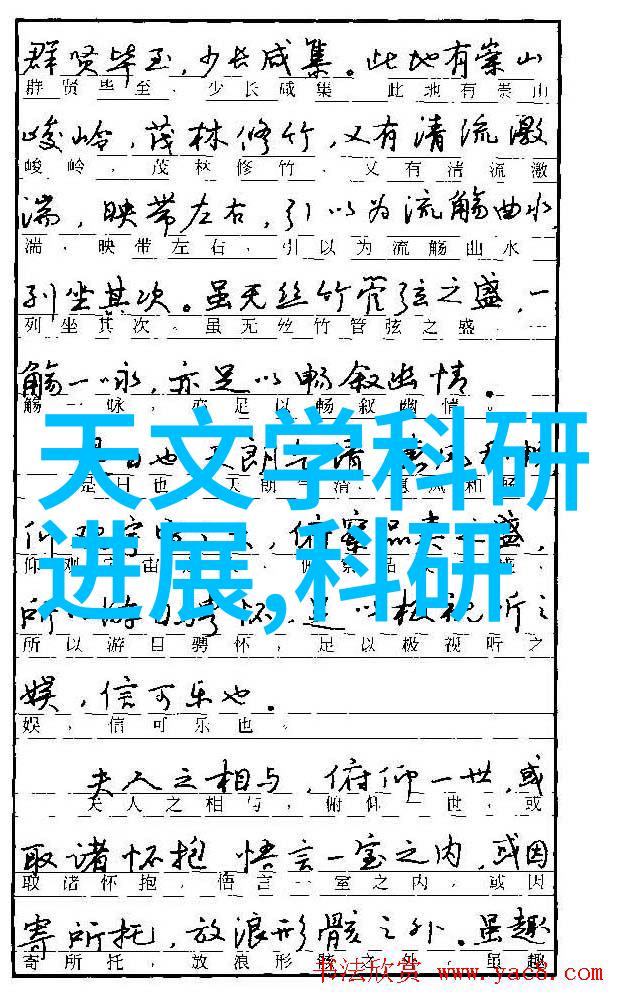 群贤毕至，少长咸集。此地有崇山
群贤毕至，少长咸集。此地有崇山
峻岭，茂林修竹，又有清流激
峻岭，茂林修竹，又有清流激
湍，映带左右，引以为流觞曲水
湍，映带左右，引以为流觞曲水
列坐其次。虽无丝竹管弦之盛，一
列坐其次。虽无丝竹管弦之盛，一
觞一咏，亦足以畅叙幽情。
觞一咏，亦足以畅叙幽情。
天文学科研
是日也 天朗气清 惠风和畅
是日也，天朗气清，惠风和
进展,科研
仰观宇 俯察品类之盛，
仰观宇宙 俯察品
所以游目骋怀，足以极视听之
所以游目骋怀，足以极视听之
娱，信可乐也。
娱，信可乐也。
夫人之相与，俯仰一世，或
夫人之相与，俯仰一世，或
取诸怀抱 悟言一室之内，或因
取诸怀抱，悟言一室之内，或因
寄所托，放浪形骸之外。虽趣
寄所托，放浪形骸之外。虽趣
书法欣赏 www.yac8.com